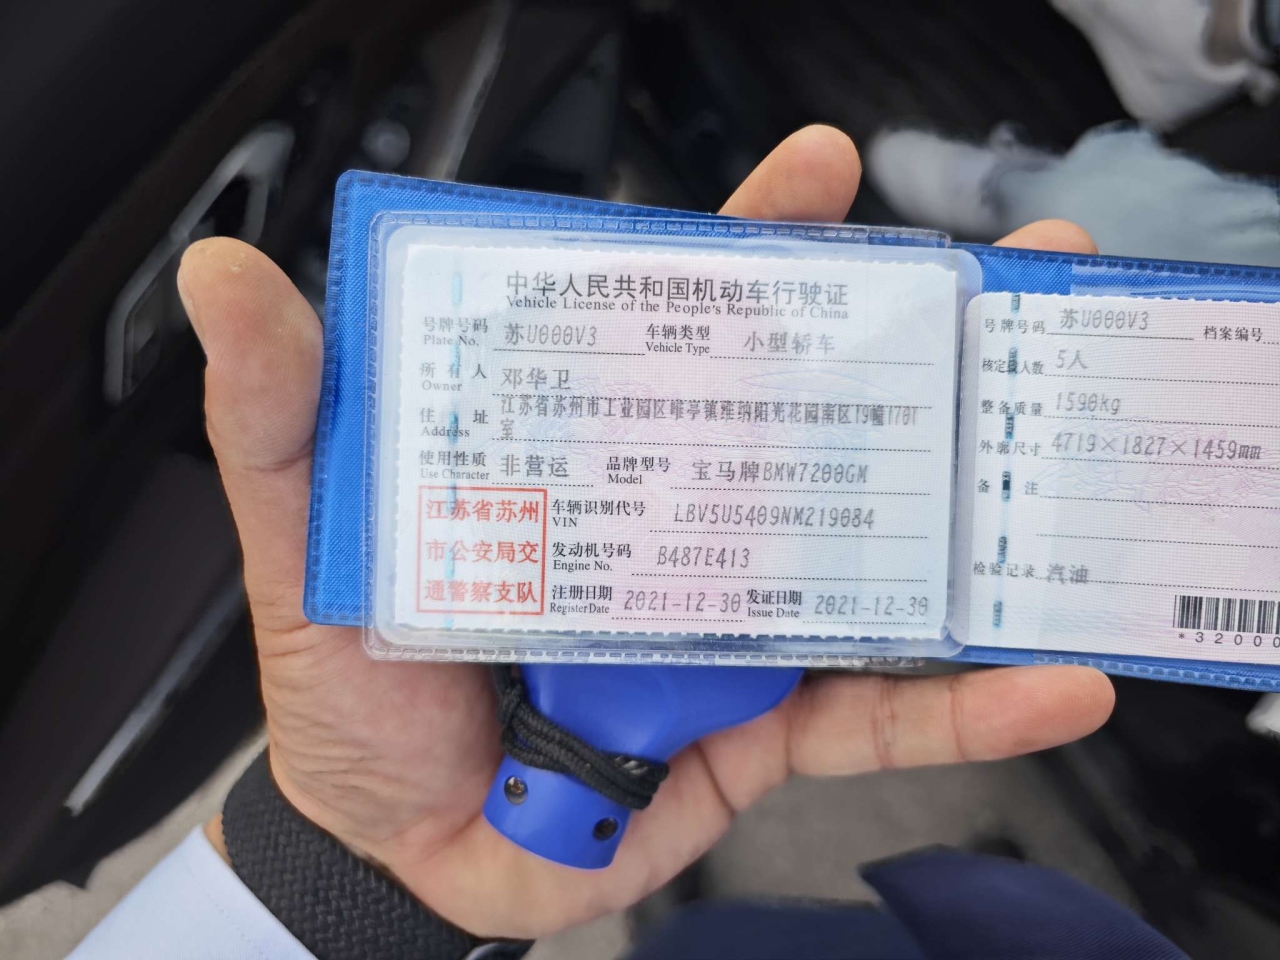 中华人民共和国机动车行驶证
Vehicle License of the People's Republic of China
号牌号码 苏U000V3 车辆类型 小型轿车
Plate No. Vehicle Type
所有人 邓华卫
Owner
住址 江苏省苏州市工业园区唯亭镇维纳阳光花园南区19幢1701
Address 室
使用性质 非营运 品牌型号 宝马牌BMW7200GM
Use Character Model
江苏省苏州
市公安局交
通警察支队
车辆识别代号 LBV5U5409NM219084
VIN
发动机号码 B487E413
Engine No.
注册日期 2021-12-30 发证日期 2021-12-30
Register Date Issue Date
号牌号码 苏U000V3 档案编号
核定载人数 5人
整备质量 1590kg
外廓尺寸 4719×1827×1459mm
备注
检验记录 汽油
*32000